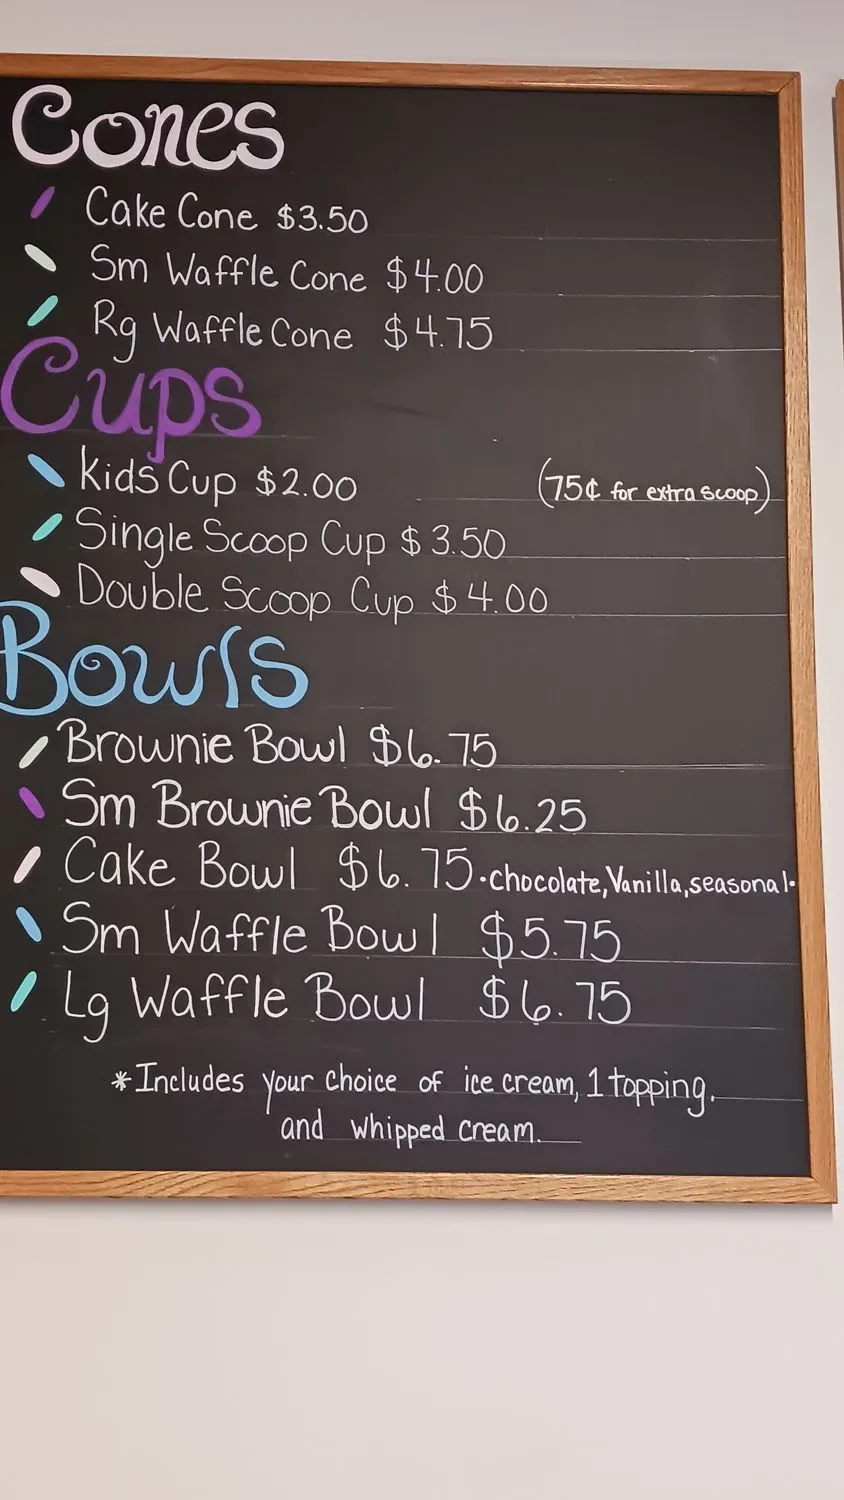 Cones
Cake Cone $3.50
Sm Waffle Cone $4.00
Rg Waffle Cone $4.75
Cups
Kids Cup $2.00 (75¢ for extra scoop)
Single Scoop Cup $3.50
Double Scoop Cup $4.00
Bowls
Brownie Bowl $6.75
Sm Brownie Bowl $6.25
Cake Bowl $6.75 •chocolate, Vanilla, seasonal•
Sm Waffle Bowl $5.75
Lg Waffle Bowl $6.75
*Includes your choice of ice cream, 1 topping.
and whipped cream.